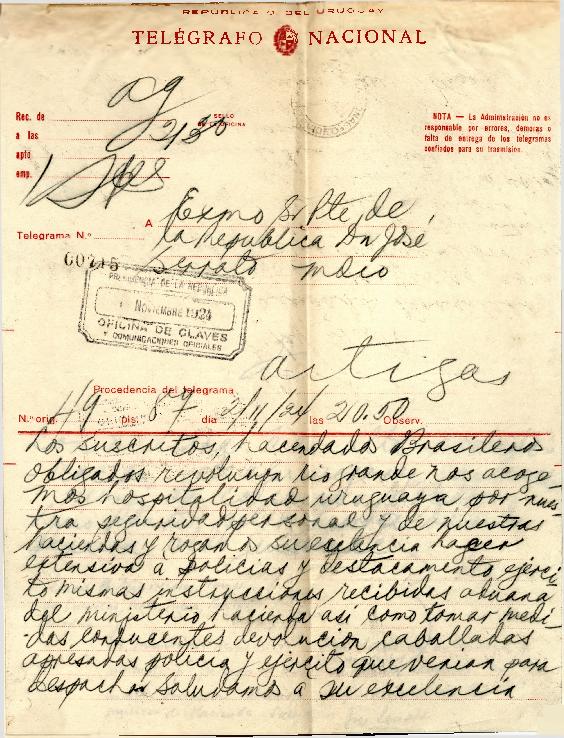 REPUBLICA O. DEL URUGUAY
TELÉGRAFO NACIONAL
Rec. de
SELLO
DE LA OFICINA
a las 2130
apto
emp.
NOTA — La Administración no es
responsable por errores, demoras o
falta de entrega de los telegramas
confiados para su trasmisión.
A Exmo Sr Pte de
Telegrama N.º la Republica Dn José
Serrato mdeo
00215
PRESIDENCIA DE LA REPUBLICA
NOVIEMBRE 1924
OFICINA DE CLAVES
Y COMUNICACIONES OFICIALES
Artigas
Procedencia del telegrama
N.º orig. 49 pls. 67 dia 2/11/24 las 20.50 Observ.
Los suscritos, hacendados Brasileros
obligados revolucion riogrande nos acoge-
mos hospitalidad uruguaya por nues-
tra seguridad personal y de nuestras
haciendas y rogamos su exelencia hacer
extensiva a policias y destacamento ejerci-
to mismas instrucciones recibidas aduana
del ministerio hacienda así como tomar medi-
das conducentes devolución caballadas
apresadas policia y ejército que venian para
despacho saludamos a su excelencia